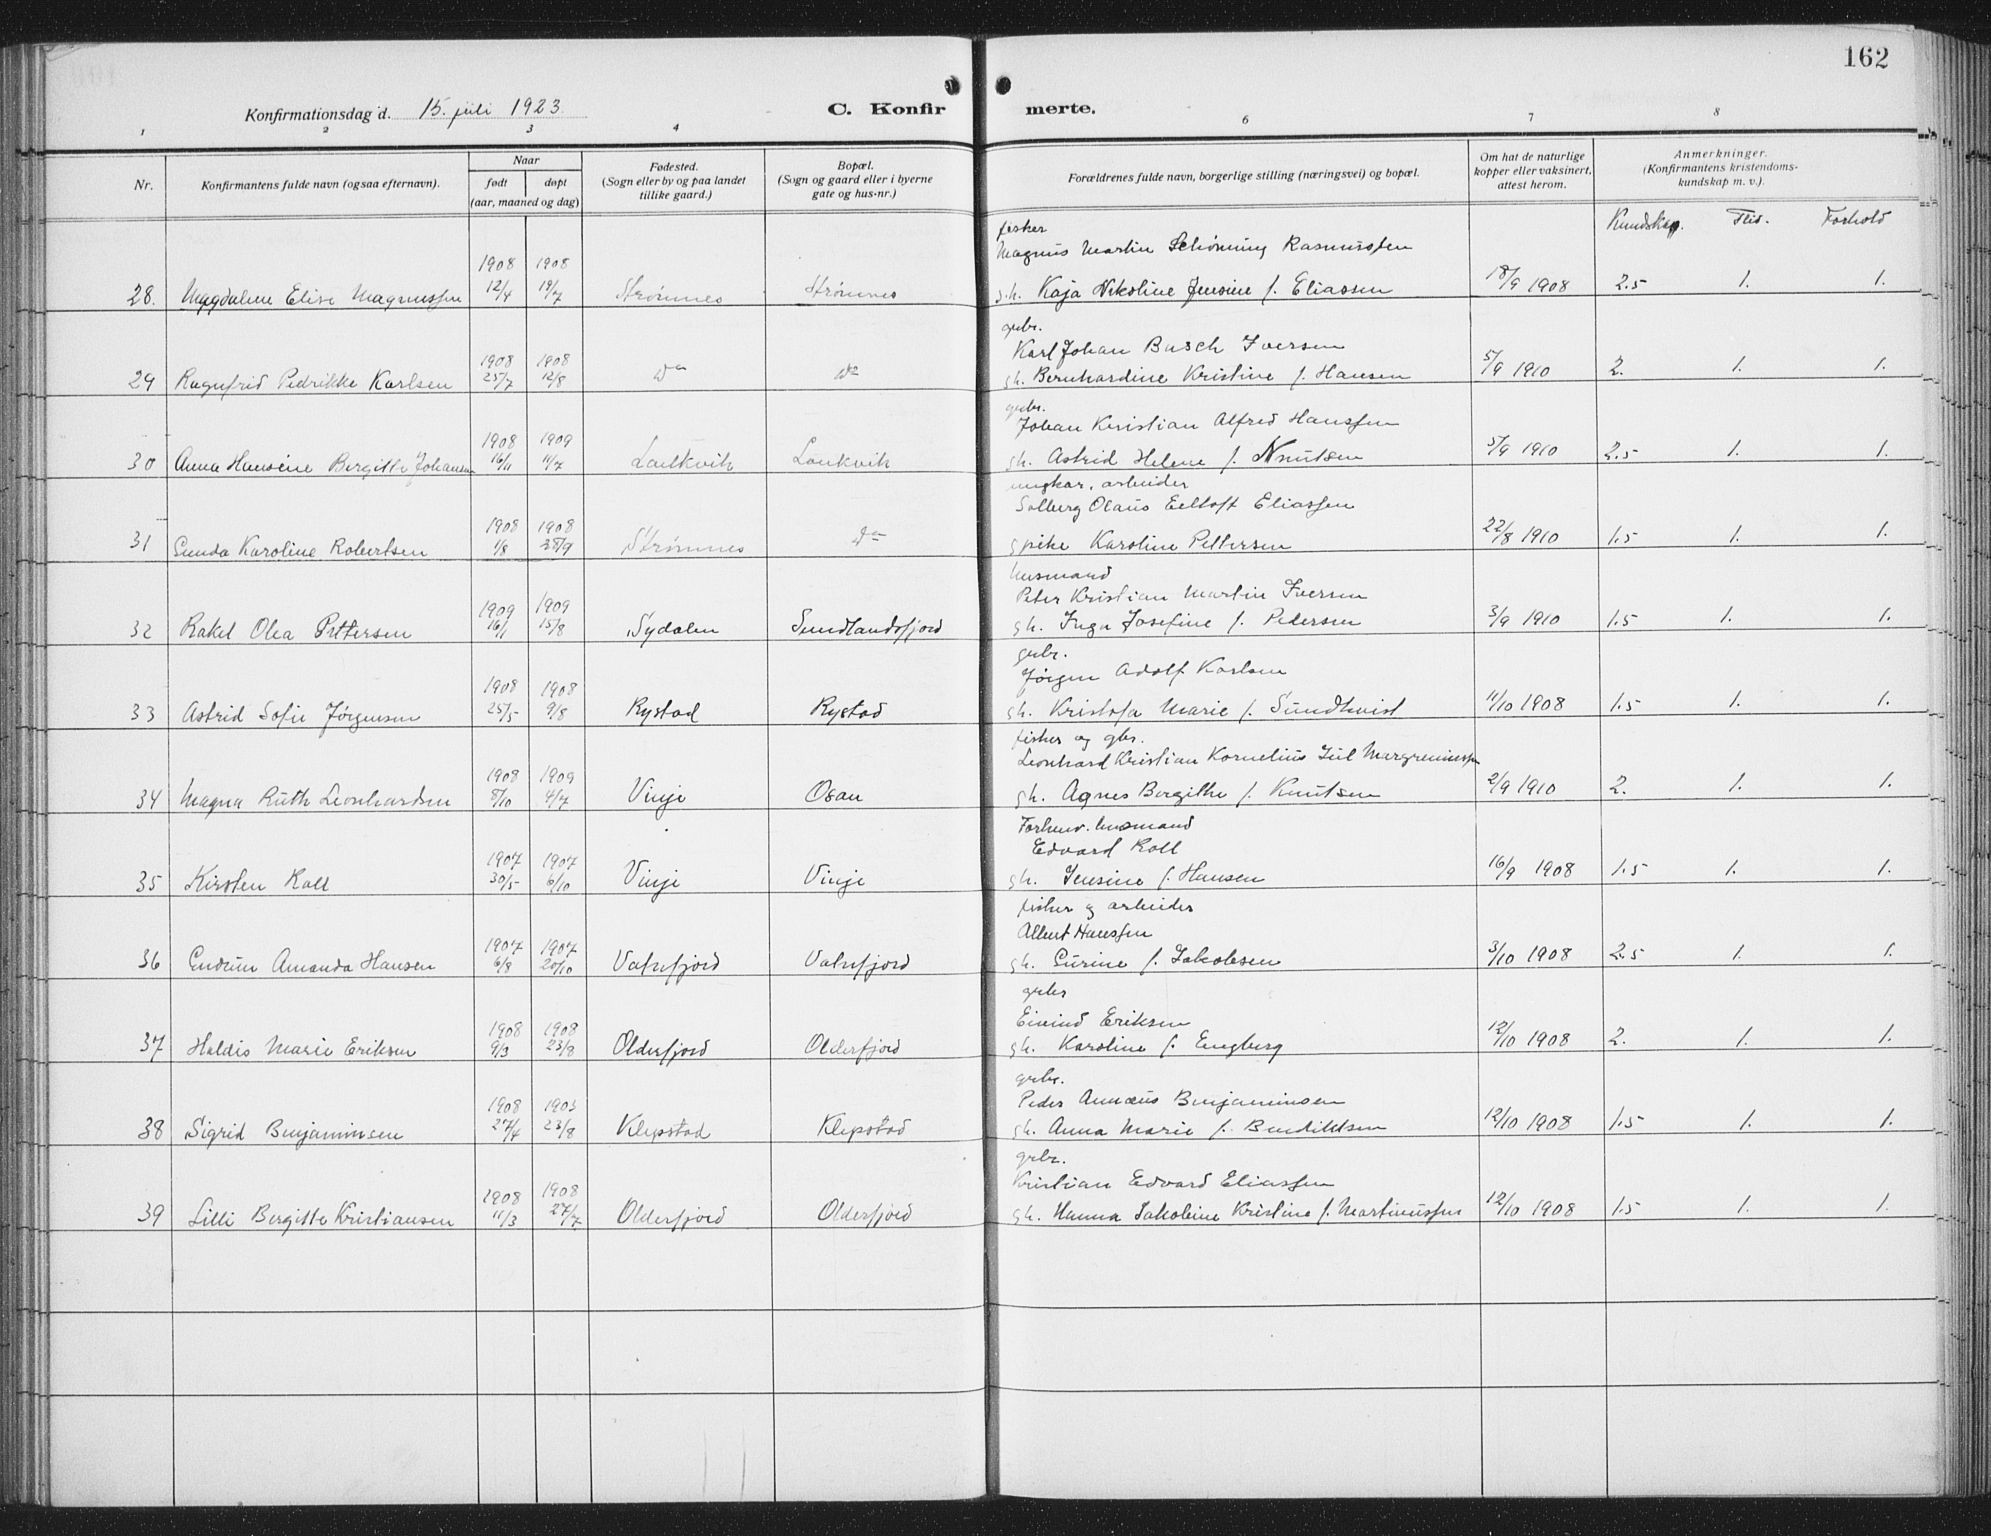 162
Konfirmationsdag d. 15. juli 1923. C. Konfir merte.
1 2 3 4 6 7 8
Nr. Konfirmantens fulde navn (ogsaa efternavn). Naar født døpt (aar, maaned og dag)
Fødested. (Sogn eller by og paa landet tillike gaard.)
Bopæl. (Sogn og gaard eller i byerne gate og hus-nr.)
Forældrenes fulde navn, borgerlige stilling (næringsvei) og bopæl.
Om hat de naturlige kopper eller vaksinert, attest herom.
Anmerkninger. (Konfirmantens kristendoms-kundskap m. v.).
Kundskap. Flid. Forhold
fisker
Magnus Martin Schønning Rasmussen
28. Magdalene Elise Magnussen 1908 12/4 1908 19/7 Strømnes Strømnes g.h. Kaja Nikoline Jensine f. Eliassen 18/9 1908 2.5 1. 1.
grbr.
Karl Johan Busch Iversen
29 Ragnfrid Pedrikke Karlsen 1908 25/7 1908 12/8 do do gh. Bernhardine Kristine f. Hansen 5/9 1910 2. 1. 1.
grbr.
Johan Kristian Alfred Hanssen
30 Anna Hansine Bergitte Johansen 1908 16/11 1909 11/7 Laukvik Laukvik gh. Astrid Helene f. Knutsen 5/9 1910 2.5 1. 1.
ungkar, arbeider
Solberg Olaus Eeltoft Eliassen
31 Gunda Karoline Robertsen 1908 1/8 1908 28/9 Strømnes do gpike Karoline Pettersen 22/8 1910 1.5 1. 1.
husmand
Peter Kristian Martin Iversen
32 Rakel Olea Pettersen 1909 16/1 1909 15/8 Sydalen Sundlandsfjord gh. Inga Josefine f. Pedersen 3/9 1910 1.5 1. 1.
grbr.
Jørgen Adolf Karlsen
33 Astrid Sofie Jørgensen 1908 25/5 1908 9/8 Rystad Rystad gh. Kristofa Marie f. Sundkvist 11/10 1908 1.5 1. 1.
fisker og gbr.
Leonhard Kristian Kornelius Jul Margreniussen
34 Magna Ruth Leonhardsen 1908 8/10 1909 4/7 Vinje Osan gh. Agnes Bergithe f. Knutsen 2/9 1910 2. 1. 1.
Forhenv. husmand
Edvard Roll
35 Kirsten Roll 1907 30/5 1907 6/10 Vinje Vinje gh. Jensine f. Hansen 16/9 1908 1.5 1. 1.
fisker og arbeider
Albert Hanssen
36 Gudrun Amanda Hansen 1907 6/8 1907 20/10 Vatnfjord Vatnfjord gh. Gurine f. Jakobsen 3/10 1908 2.5 1. 1.
grbr
Eivind Eriksen
37 Haldis Marie Eriksen 1908 9/3 1908 23/8 Olderfjord Olderfjord gh. Karoline f. Engberg 12/10 1908 2. 1. 1.
grbr.
Peder Annæus Benjaminsen
38 Sigrid Benjaminsen 1908 27/4 1908 23/8 Klepstad Klepstad gh. Anna Marie f. Bendiktsen 12/10 1908 1.5 1. 1.
grbr.
Kristian Edvard Eliassen
39 Lilli Bergitte Kristiansen 1908 11/3 1908 27/7 Olderfjord Olderfjord gh. Hanna Jakobine Kristine f. Martinussen 12/10 1908 1.5 1. 1.